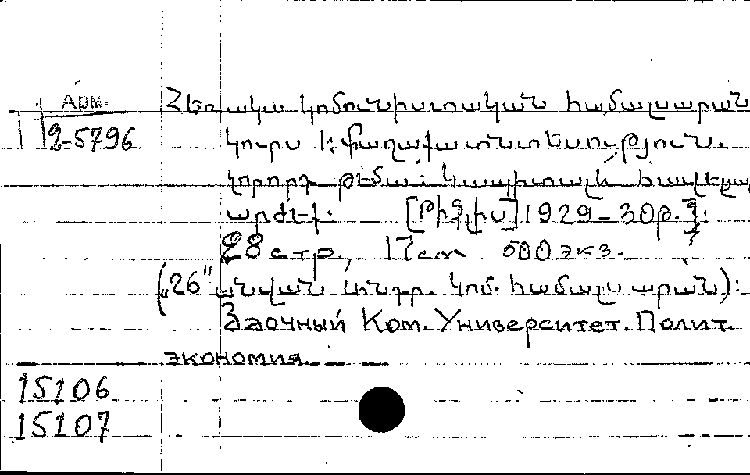 Арм.
2-5796
Հեռակա կոմունիստական համալսարան
կուրս 1: Քաղաքատնտեսություն.
կորորդ թեմա: Կապիտալն հավելյալ
արժեք. [Թիֆլիս] 1929-30թ.
28 стр., 17см 500 экз.
(„26" անվան կոմ. համալսարան):
Заочный Ком. Университет. Полит.
экономия.
15106
15107